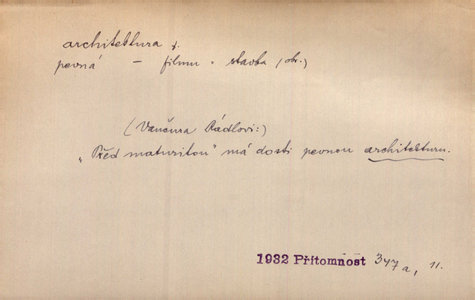 architektura f.
pevná – filmu = stavba (ob.)
(Vančura Rádlovi:)
„Před maturitou" má dosti pevnou architekturu.
1932 Přítomnost 347 a, 11.